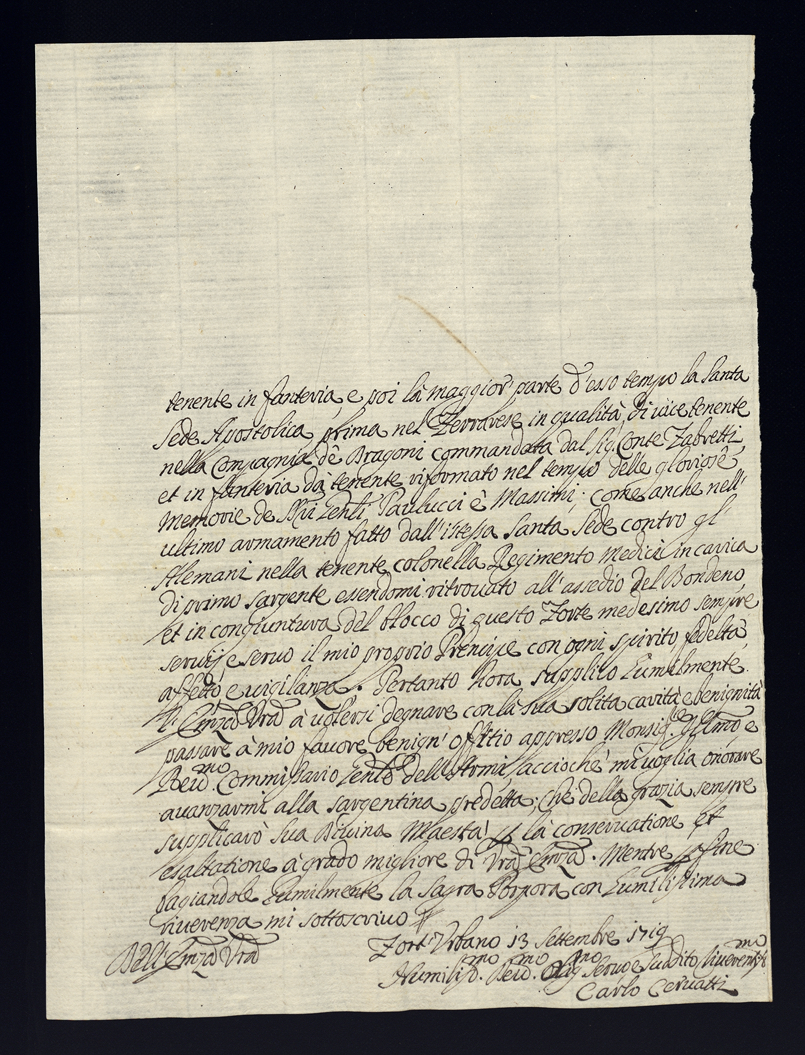 tenente in fanteria, e poi la maggior parte d'eso tempo la Santa
Sede Apostolica prima nel Ferrarese in qualità di vice tenente
nella Compagnia dè Dragoni commandata dal Sig. Conte Zabretti
et in fanteria dà tenente riformato nel tempo delle gloriose
Memorie de Paulucci è Massimi; come anche nell'
ultimo armamento fatto dall'istessa Santa Sede contro gl'
Alemani nella tenente colonella Regimento Medici in carica
di primo sargente esendomi ritrovato all'assedio del Bondeno
et in congiuntura del blocco di questo Forte medesimo sempre
servij e servo il mio proprio Prencipe con ogni spirito fedeltà
affetto e vigilanza. Pertanto hora supplico humilmente
Emza Vra à volersi degnare con la sua solita carità e benignità
passare à mio favore benign'offitio appresso Monsig.re Illmo e
Reud.mo Commissario dell'Armi acciochè mi voglia onorare
avanzarmi alla sargentina predetta; chè della grazia sempre
supplicarò Sua Divina Maestà la conservatione et
esaltatione à grado migliore di Vra Emza. Mentre fine
bagiandole humilmente la Sagra Porpora con humilissima
riverenza mi sottoscrivo
Dell'Emza Vra
Forte Urbano 13 Settembre 1719
Humilis.mo Deuo.mo Oblig.mo Servo e Suddito Riverentis.mo
Carlo Cervatti